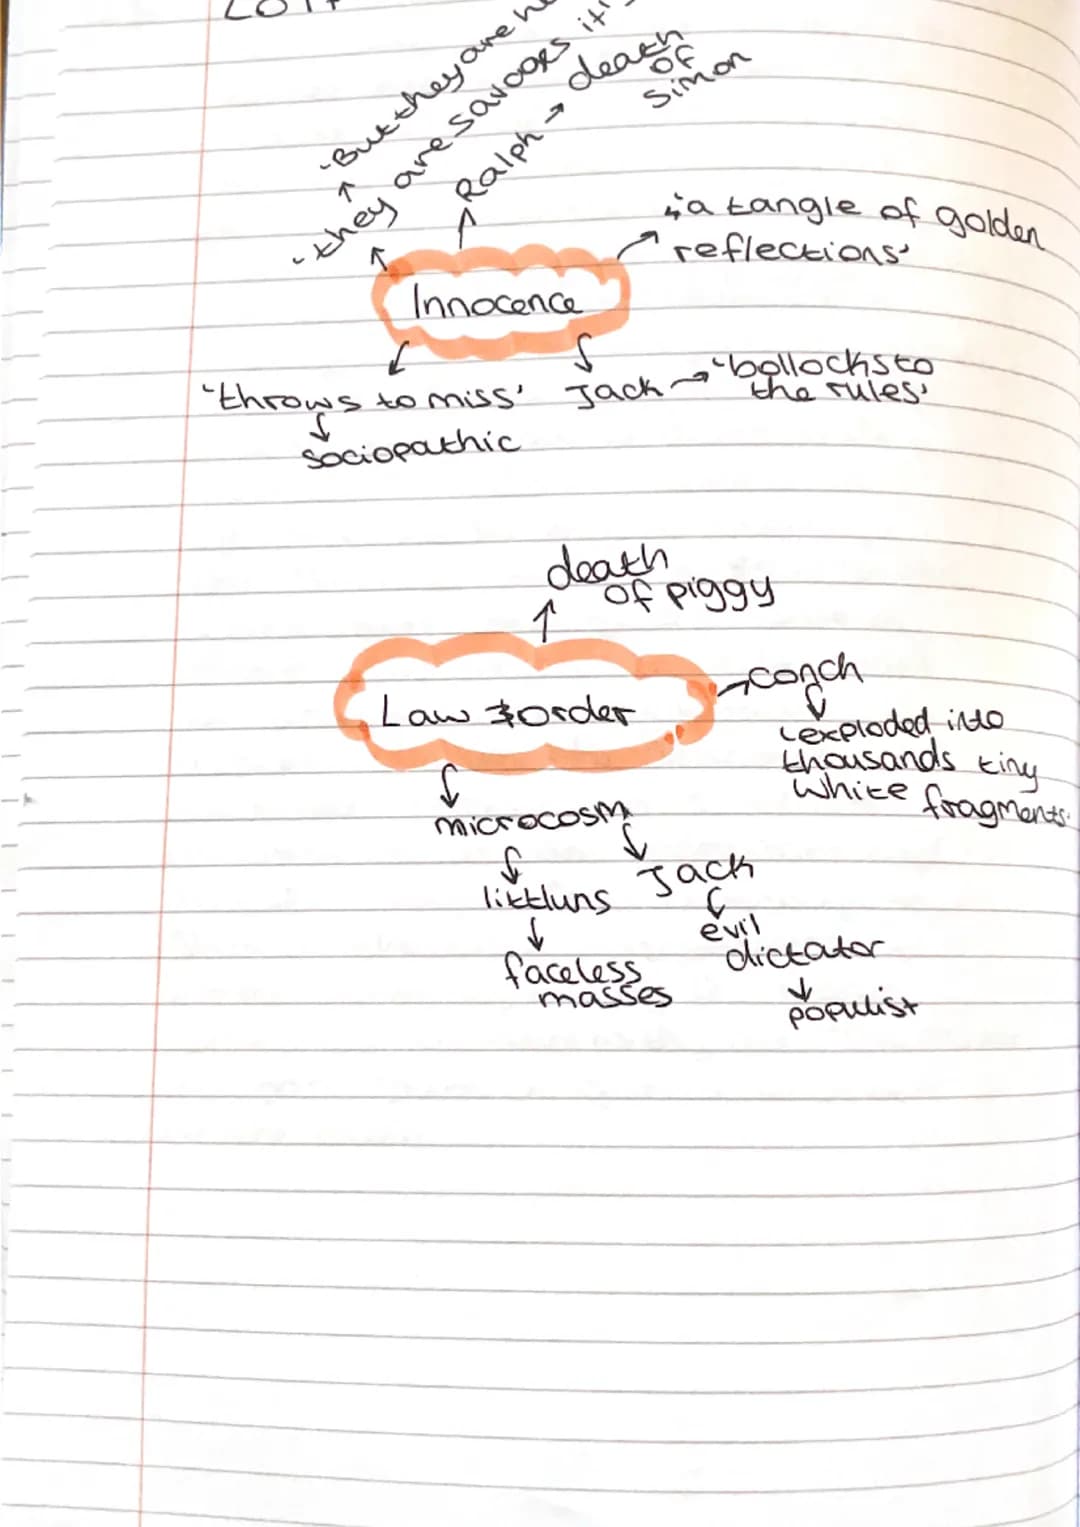 'But they are
'they are savages it'
Ralph → death
of
Simon
'a tangle of golden
reflections'
Innocence
'throws to miss'
sociopathic
Jack → 'bollocks to
the rules'
death
of piggy
Law & order
conch
'exploded into
thousands tiny
white fragments'
microcosm
littluns
faceless
masses
Jack
evil
dictator
populist